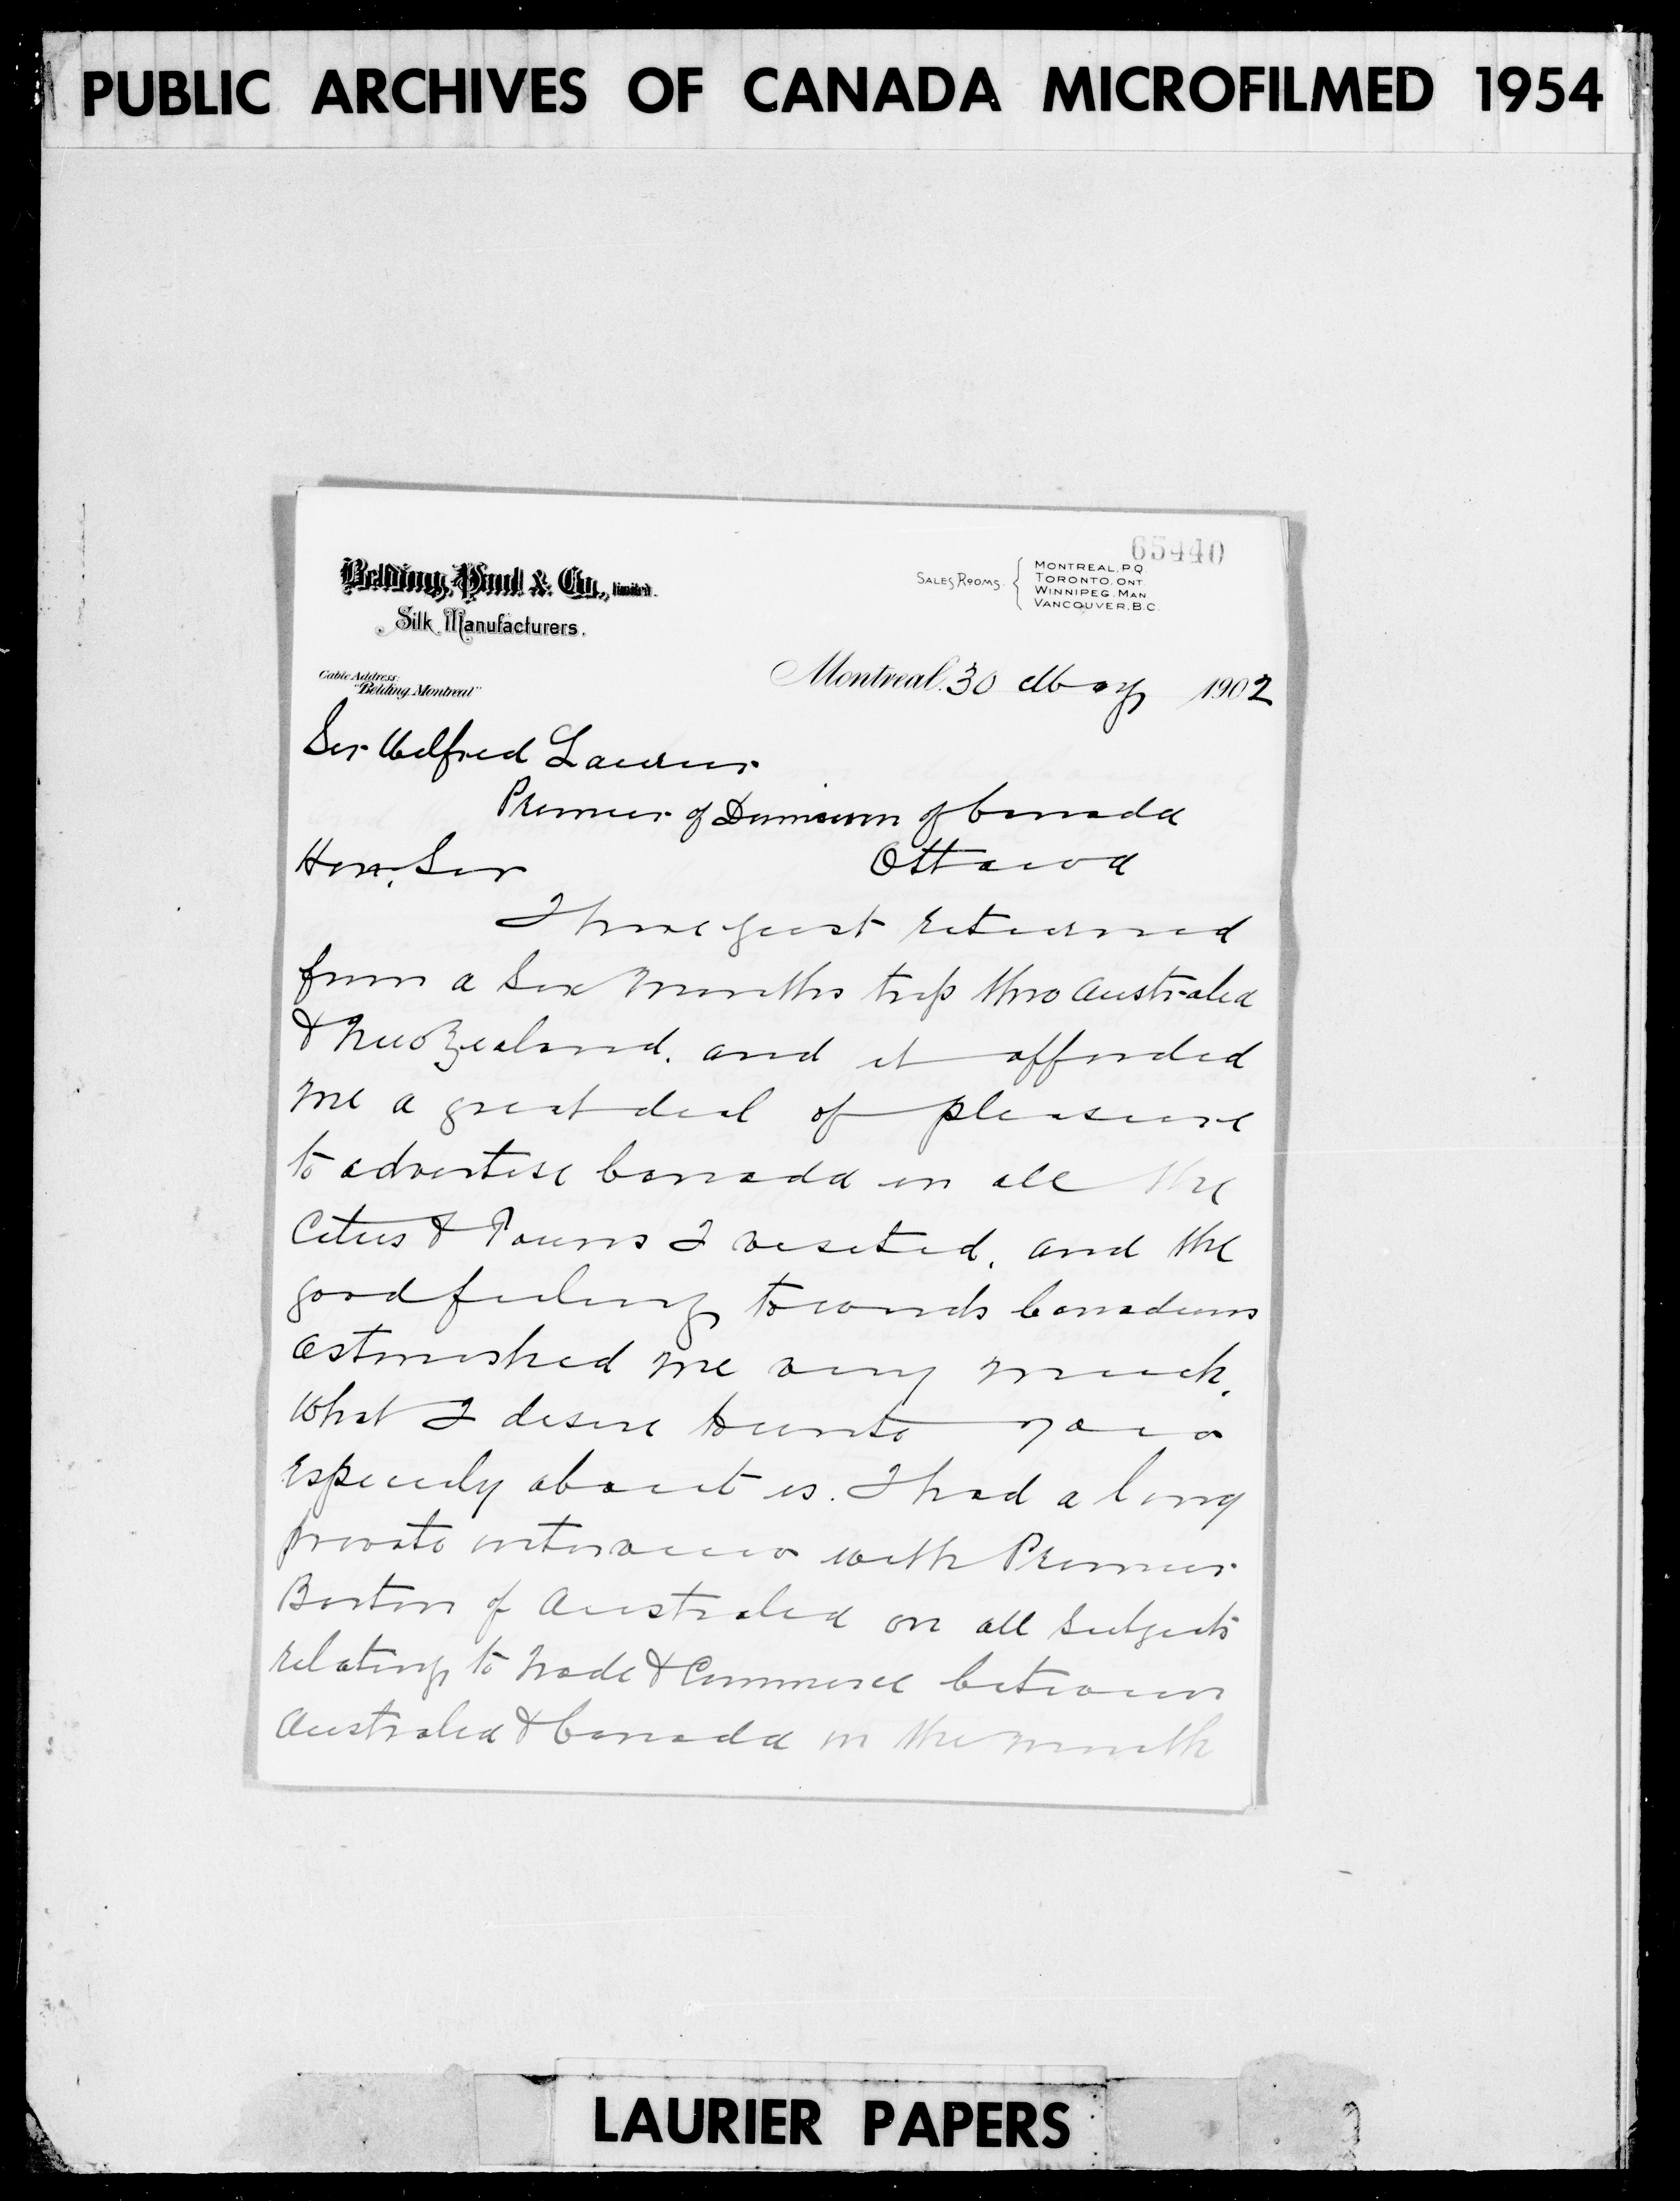 PUBLIC ARCHIVES OF CANADA MICROFILMED 1954
65440
Belding, Paul & Co., limited.
Silk Manufacturers.
SALES ROOMS. MONTREAL. P.Q.
TORONTO. ONT.
WINNIPEG. MAN.
VANCOUVER. B.C.
Cable Address:
"Belding, Montreal"
Montreal. 30 May 1902
Sir Wilfred Laurier
Premier of Dominion of Canada
Hon. Sir Ottawa
I have just returned
from a Six Months trip thro Australia
& New Zealand. and it afforded
me a great deal of pleasure
to advertise Canada in all the
Cities & Towns I visited. and the
good feeling towards Canadians
astonished me very much.
What I desire to write you
especialy about is. I had a long
private interview with Premier
Barton of Australia on all subjects
relating to Trade & Commerce between
Australia & Canada in the month
LAURIER PAPERS